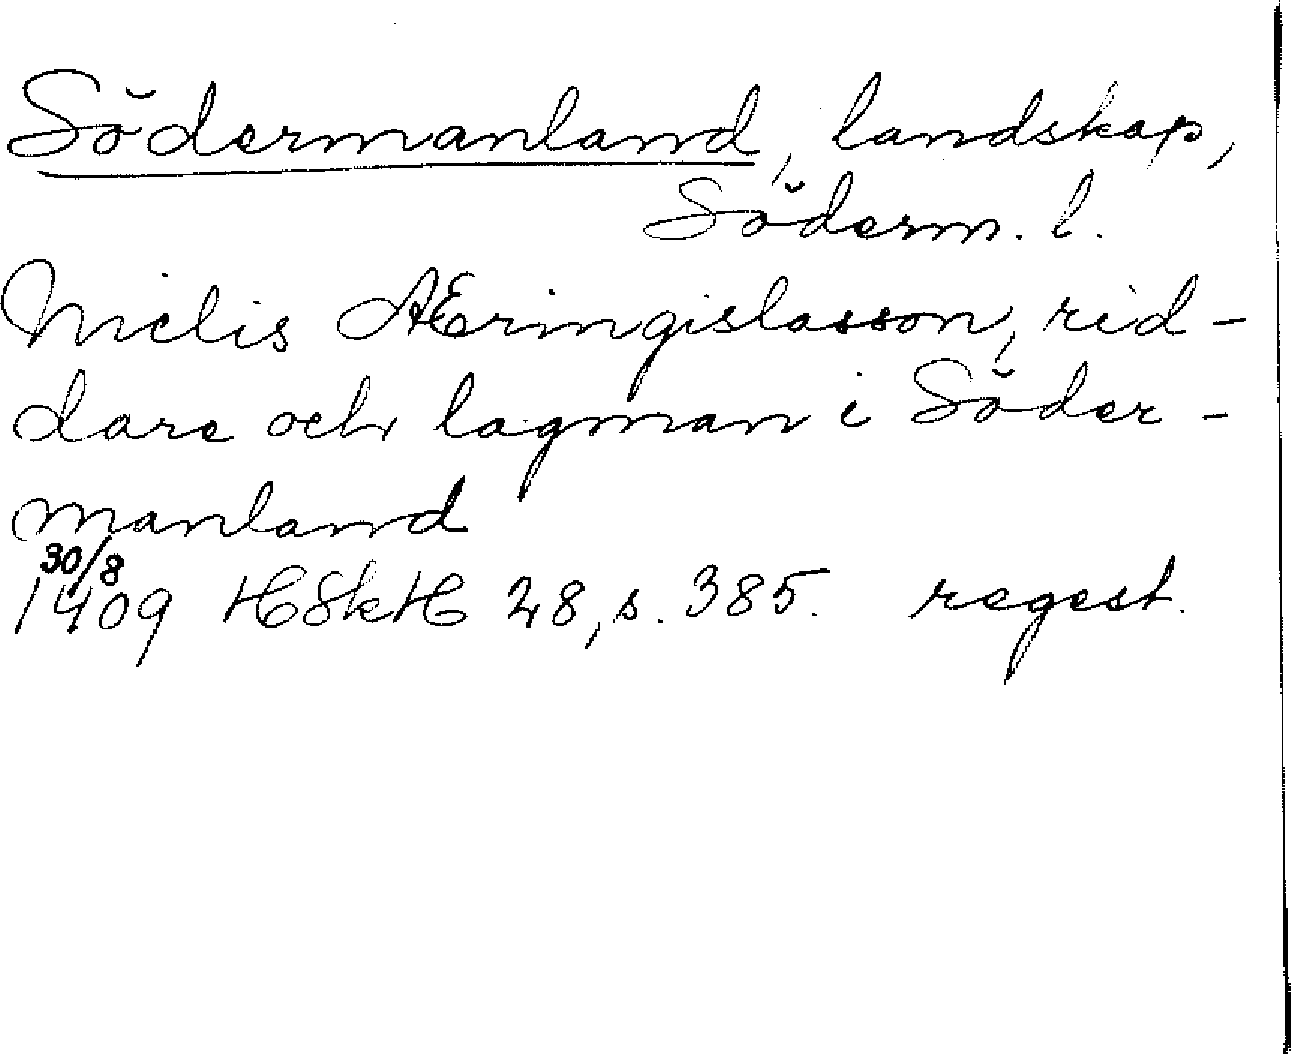 Södermanland, landskap,
Söderm. l.
Nielis ÆEringislasson, rid-
dare och lagman i Söder-
manland
30/8
1409 HSkH 28, s. 385. regest.